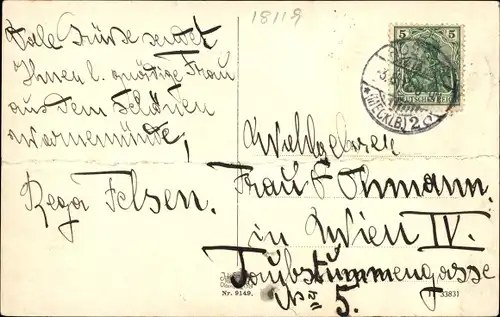 18119
Viele Grüße sendet
Ihnen l. gnädige Frau
aus dem schönen
Warnemünde,
Rega Felsen.
5 5
DEUTSCHES REICH
(MECKLB) 2
Wohlgeboren
Frau E Ohmann.
in Wien IV.
Taubstummengasse
No 5.
Nr. 9149.
33831